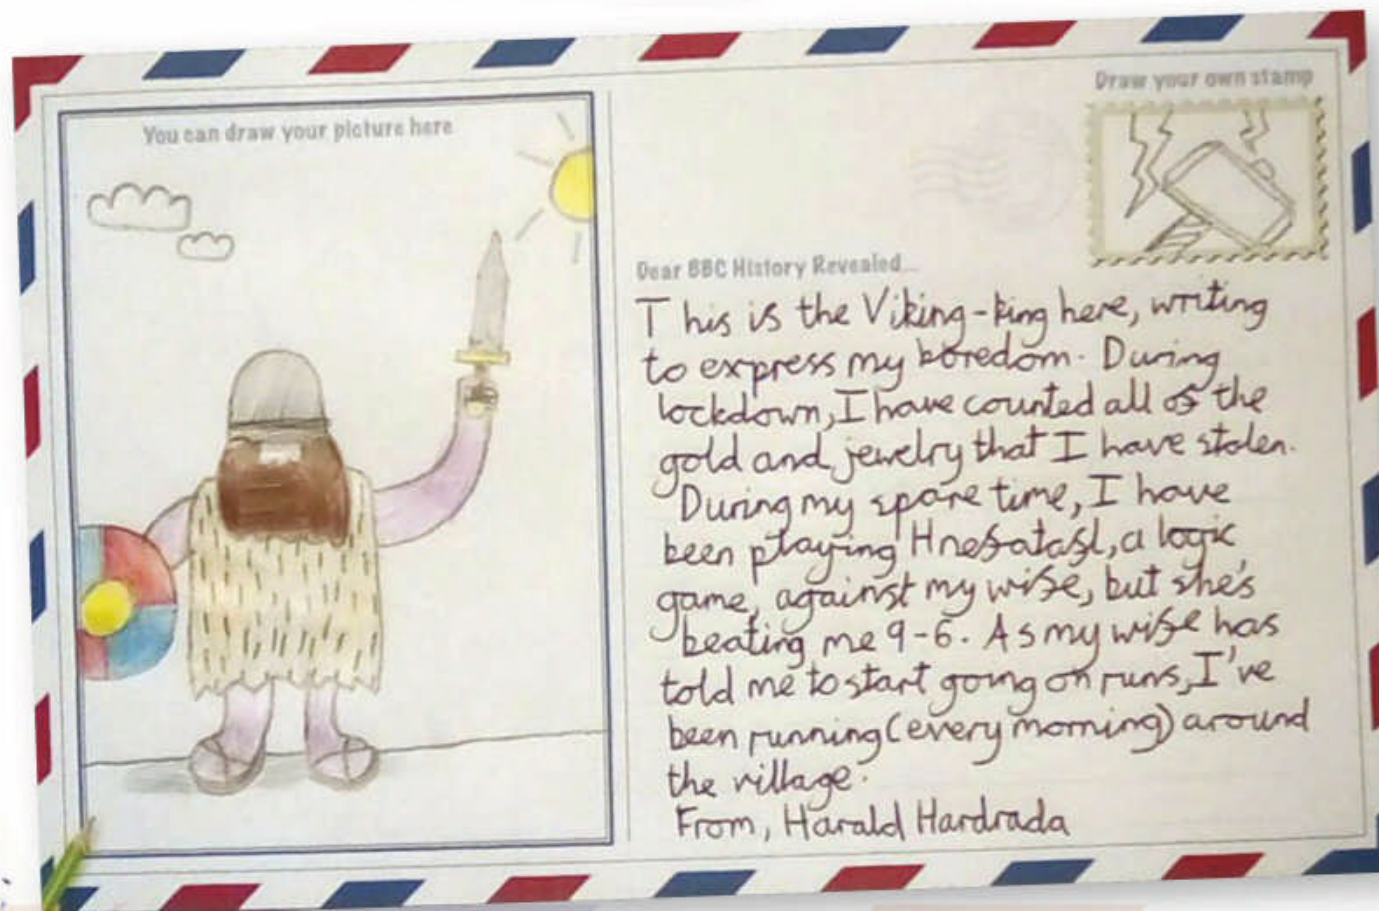 You can draw your picture here
Draw your own stamp
Dear BBC History Revealed...
This is the Viking-king here, writing
to express my boredom. During
lockdown, I have counted all of the
gold and jewelry that I have stolen.
During my spare time, I have
been playing Hnefatafl, a logic
game, against my wife, but she's
beating me 9-6. As my wife has
told me to start going on runs, I've
been running (every morning) around
the village.
From, Harald Hardrada